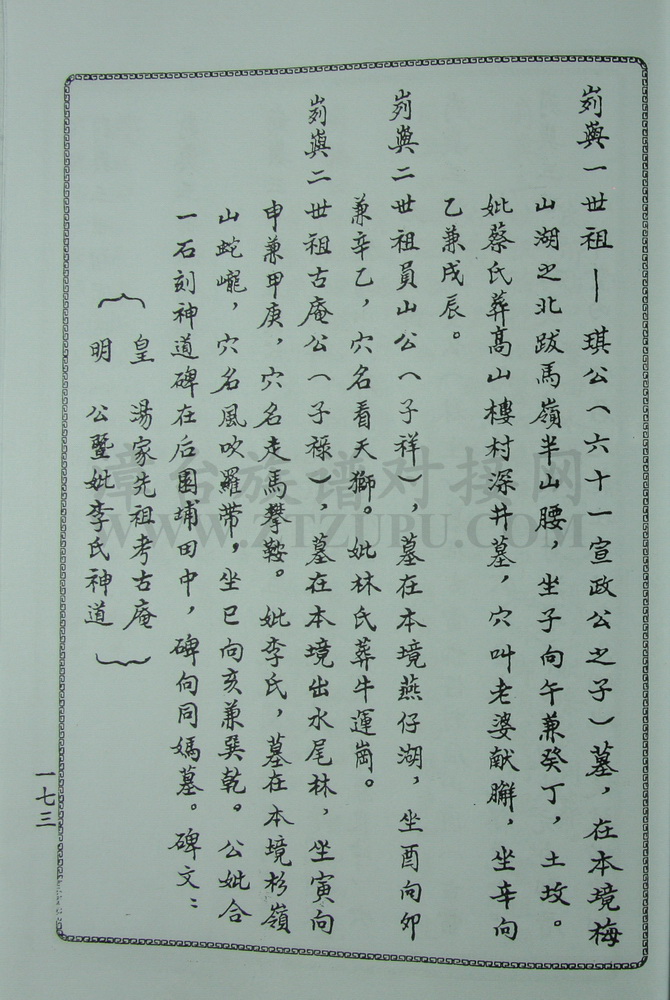 剡與一世祖——琪公（六十一宣政公之子）墓，在本境梅
山湖之北跋馬嶺半山腰，坐子向午兼癸丁，土坟。
妣蔡氏葬高山樓村深井墓，穴叫老婆献腳，坐辛向
乙兼戌辰。
剡與二世祖員山公（子祥），墓在本境燕仔湖，坐酉向卯
兼辛乙，穴名看天獅。妣林氏葬牛運崗。
剡與二世祖古庵公（子祿），墓在本境出水尾林，坐寅向
申兼甲庚，穴名走馬攀鞍。妣李氏，墓在本境杉嶺
山蛇巃，穴名風吹羅帶，坐巳向亥兼巽乾。公妣合
一石刻神道碑在后園埔田中，碑向同媽墓。碑文：
（皇 湯家先祖考古庵
明 公暨妣李氏神道）
一七三
漳台族谱对接网
WWW.ZTZUPU.COM